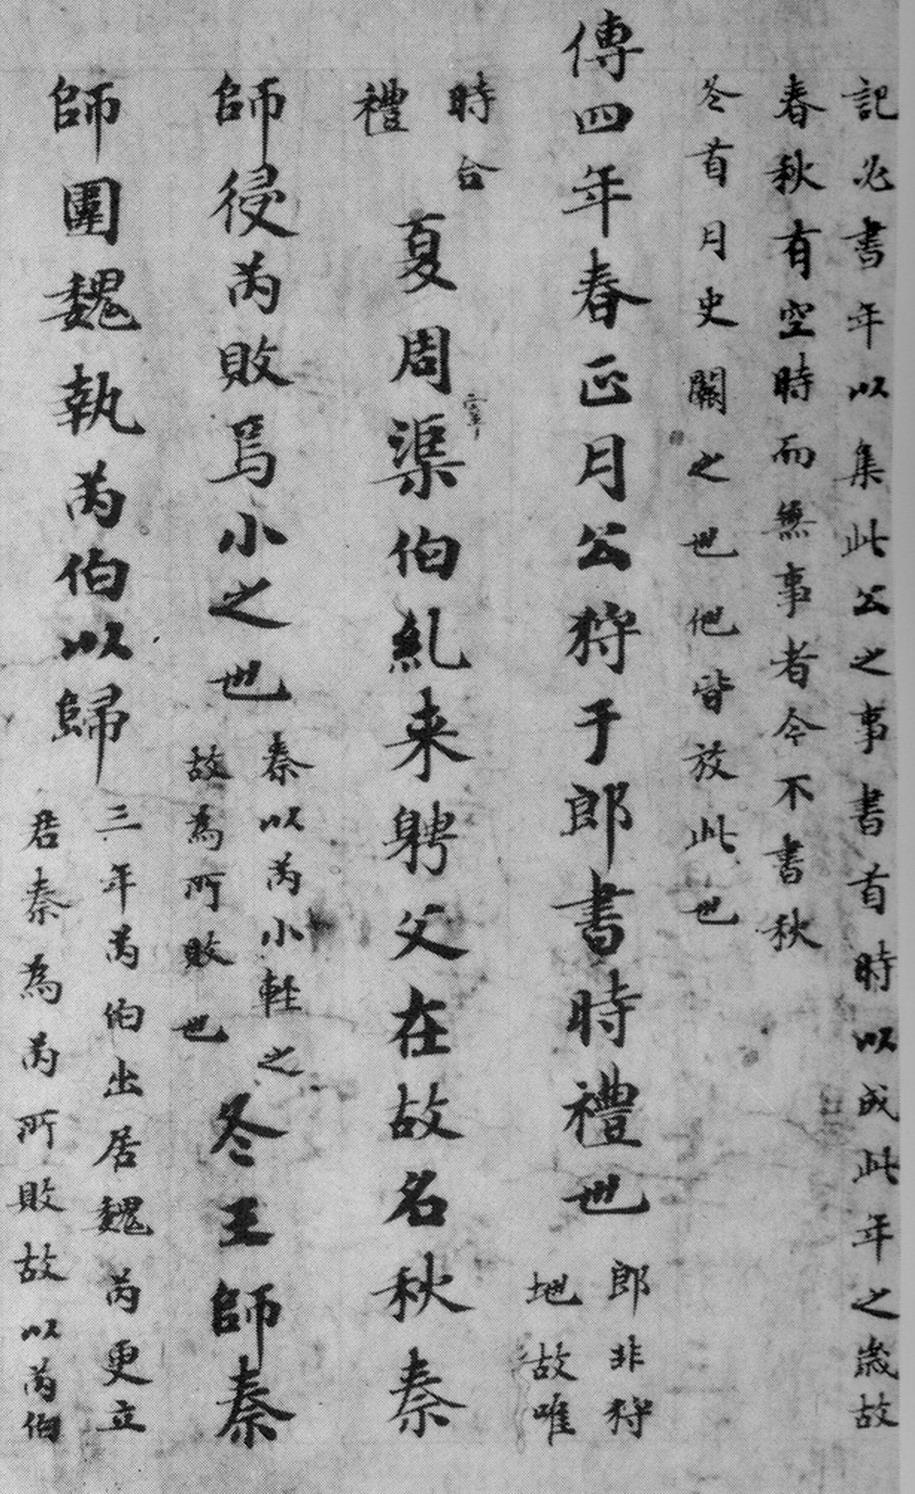 記必書年以集此公之事書首時以成此年之歲故
春秋有空時而無事者今不書秋
冬首月史闕之也他皆放此也
傳四年春正月公狩于郎書時禮也
郎非狩
地故唯
時合
禮
夏周渠伯糺来聘父在故名秋秦
宰
師侵芮敗焉小之也
秦以芮小軽之
故為所敗也
冬王師秦
師圍魏執芮伯以歸
三年芮伯出居魏芮更立
君秦為芮所敗故以芮伯